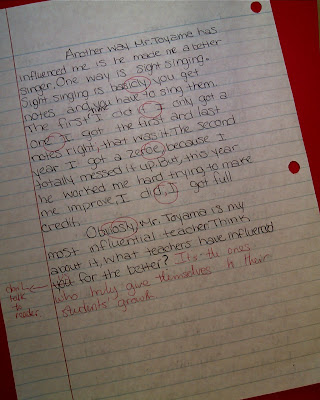 Another way Mr. Toyama has
influenced me is he made me a better
singer. One way is sight singing.
Sight singing is basicly you get
notes and you have to sing them.
The first time I did it I only got a
one. I got the first and last
notes right, that was it. The second
year I got a zeroe, because I
totally messed it up. But, this year
he worked me hard trying to make
me improve. I did. I got full
credit.
Obviosly, Mr. Toyama is my
most influential teacher. Think
about it. What teachers have influenced
you for the better? It's the ones
who truly give themselves to their
students' growth.
don't
talk
to
reader